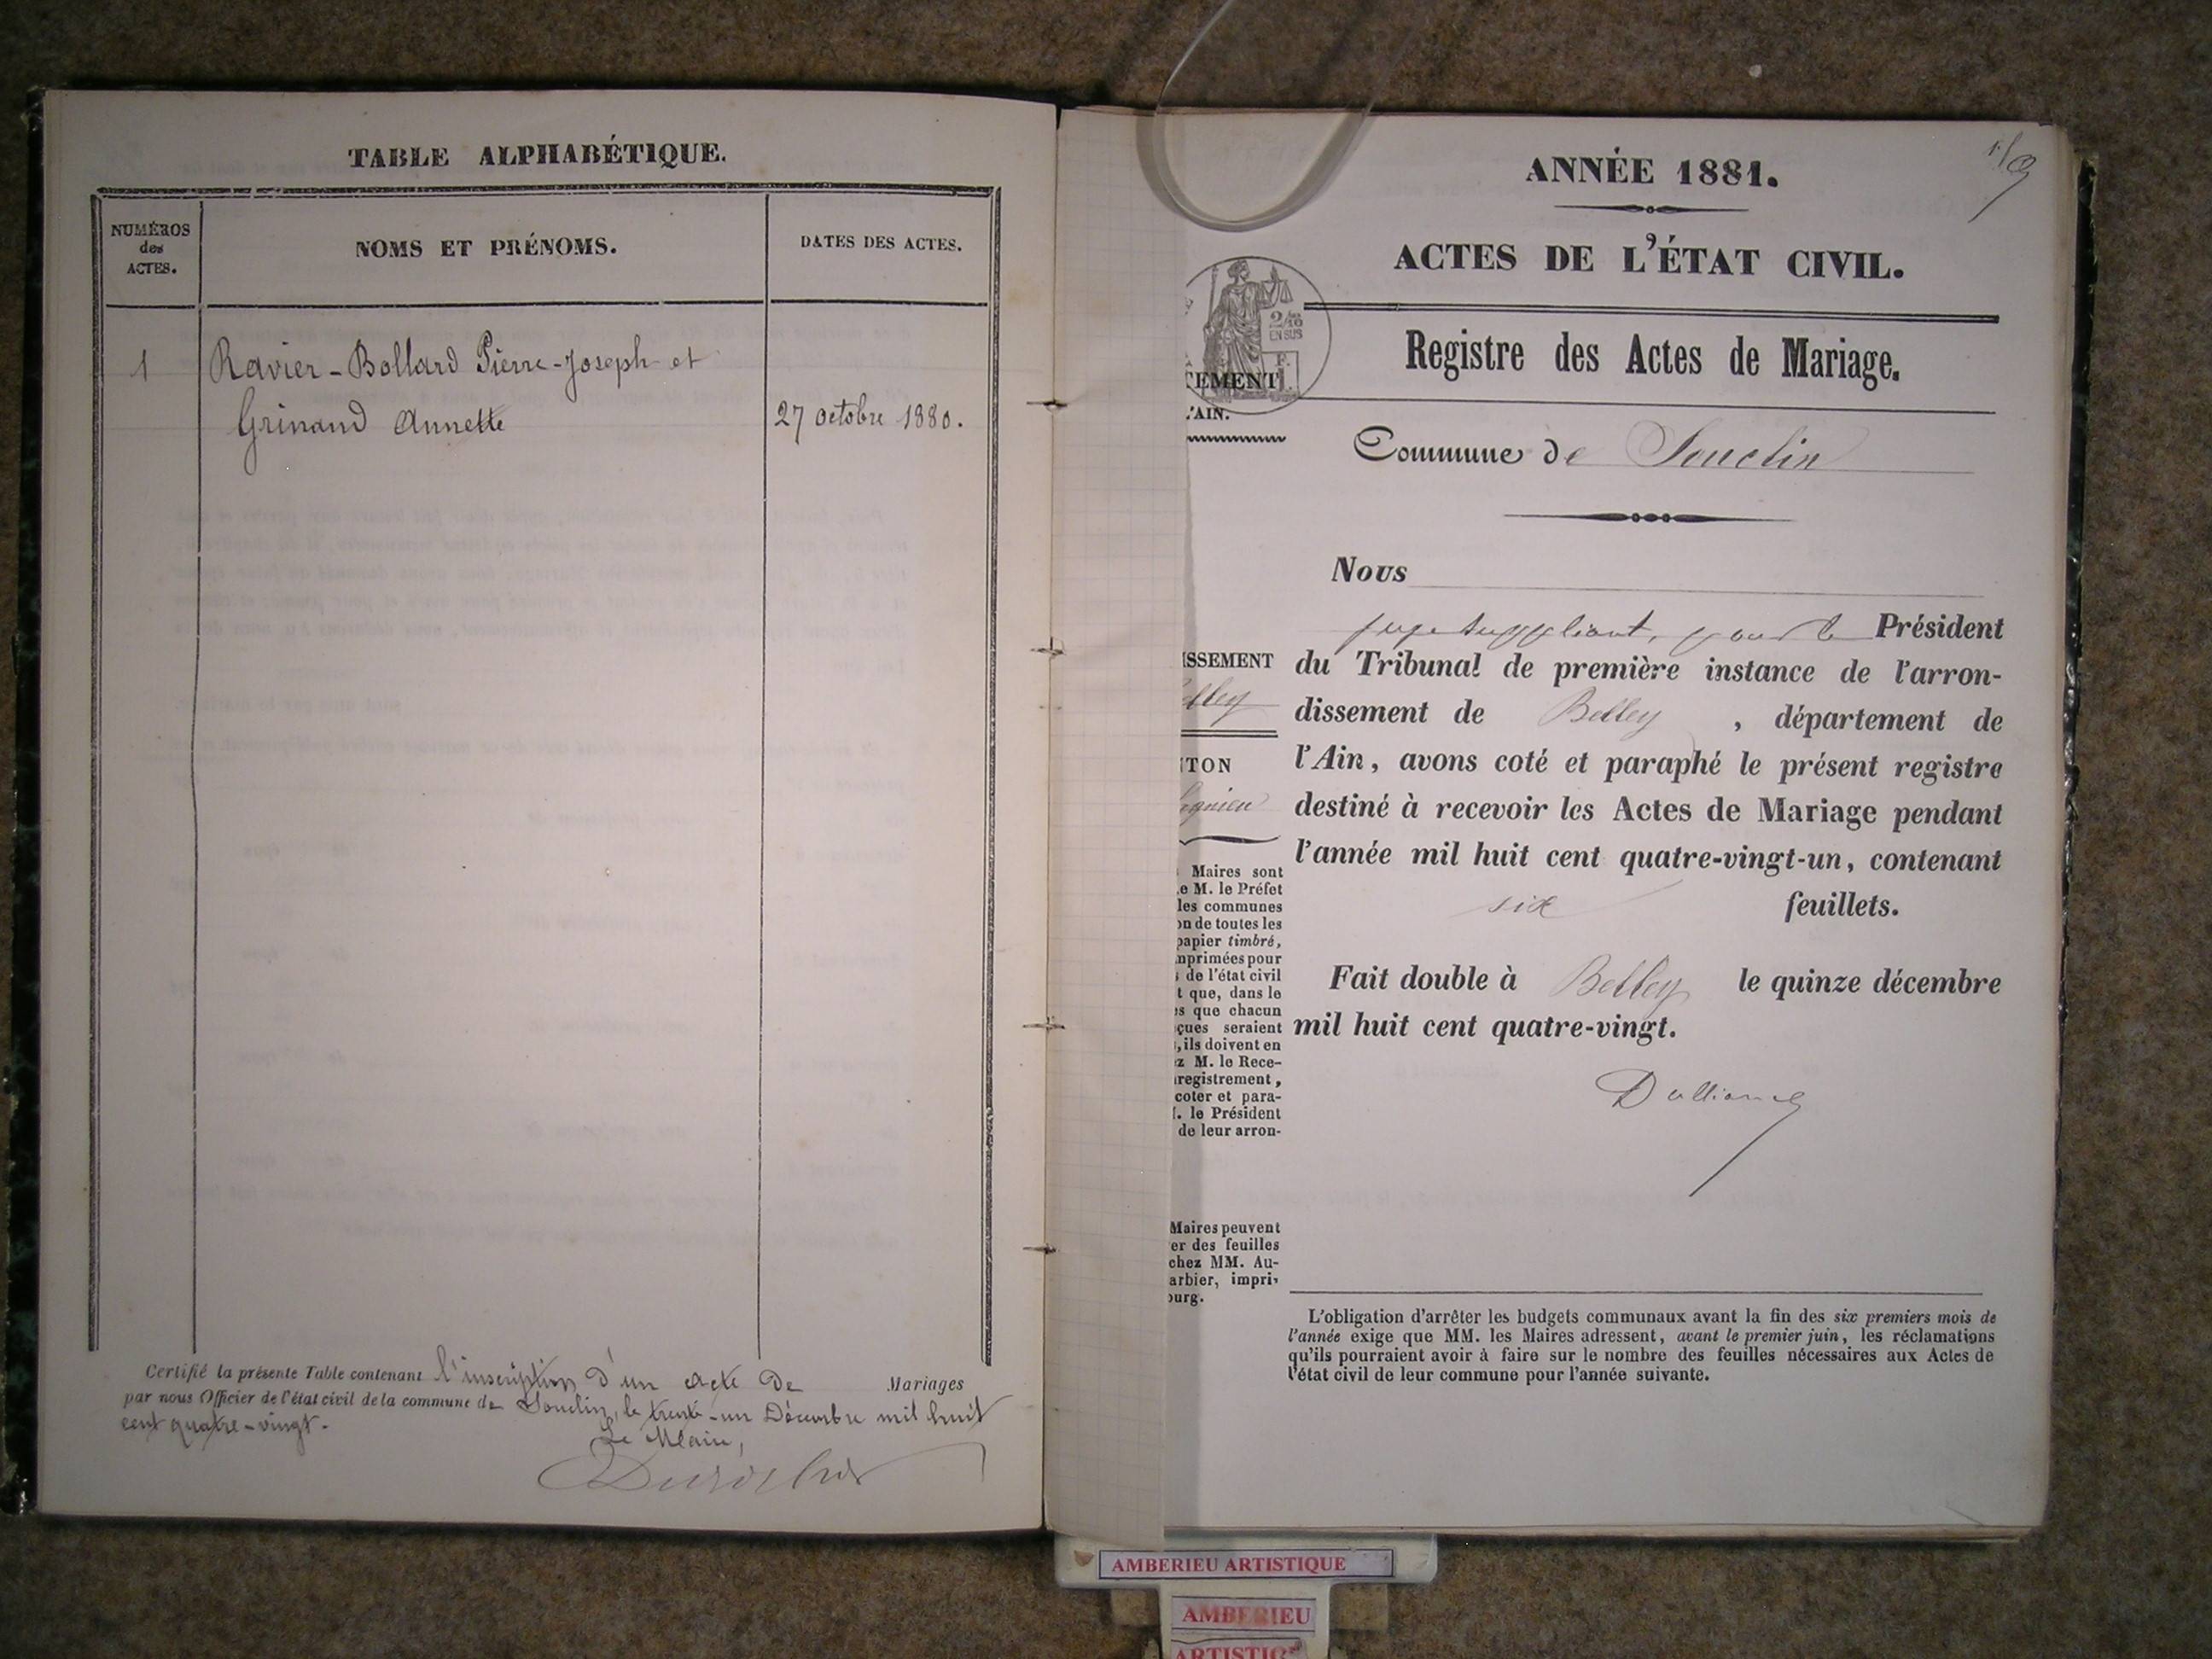 TABLE ALPHABÉTIQUE.
NUMÉROS
des
ACTES.
NOMS ET PRÉNOMS.
DATES DES ACTES.
1
Ravier-Bollard Pierre-Joseph et
Grinand Annette
27 octobre 1880.
Certifié la présente Table contenant l'inscription d'un acte de Mariages
par nous Officier de l'état civil de la commune de Souclin, le trente-un Décembre mil huit
cent quatre-vingt.
Le Maire,
ANNÉE 1881.
ACTES DE L'ÉTAT CIVIL.
2/10
EN SUS
Registre des Actes de Mariage.
TEMENT
L'AIN.
Commune de Souclin
Nous
juge suppléant, pour le Président
du Tribunal de première instance de l'arron-
dissement de Belley, département de
l'Ain, avons coté et paraphé le présent registre
destiné à recevoir les Actes de Mariage pendant
l'année mil huit cent quatre-vingt-un, contenant
six feuillets.
Fait double à Belley le quinze décembre
mil huit cent quatre-vingt.
ISSEMENT
elley
TON
agnieu
Maires sont
e M. le Préfet
les communes
on de toutes les
papier timbré,
mprimées pour
de l'état civil
t que, dans le
es que chacun
çues seraient
, ils doivent en
z M. le Rece-
registrement,
coter et para-
. le Président
de leur arron-
Maires peuvent
er des feuilles
chez MM. Au-
arbier, impri-
ourg.
L'obligation d'arrêter les budgets communaux avant la fin des six premiers mois de
l'année exige que MM. les Maires adressent, avant le premier juin, les réclamations
qu'ils pourraient avoir à faire sur le nombre des feuilles nécessaires aux Actes de
l'état civil de leur commune pour l'année suivante.
AMBERIEU ARTISTIQUE
AMBERIEU
ARTISTIQ